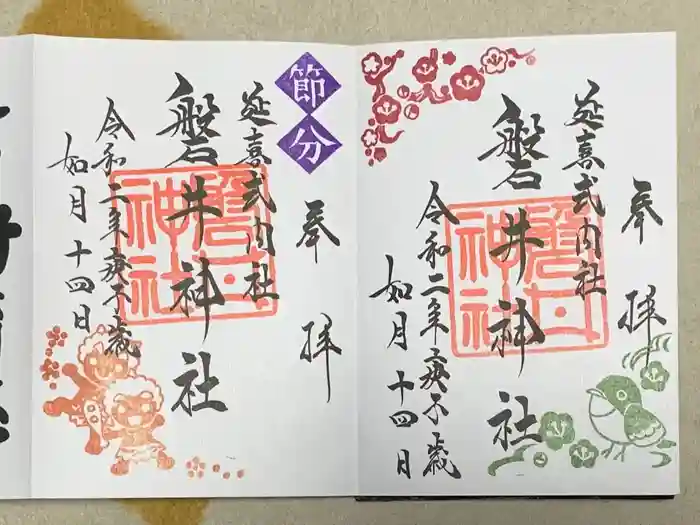 奉拝
延喜式内社
磐井神社
令和二年庚子歳
如月十四日
磐井神社
奉拝
節分
延喜式内社
磐井神社
令和二年庚子歳
如月十四日
磐井神社